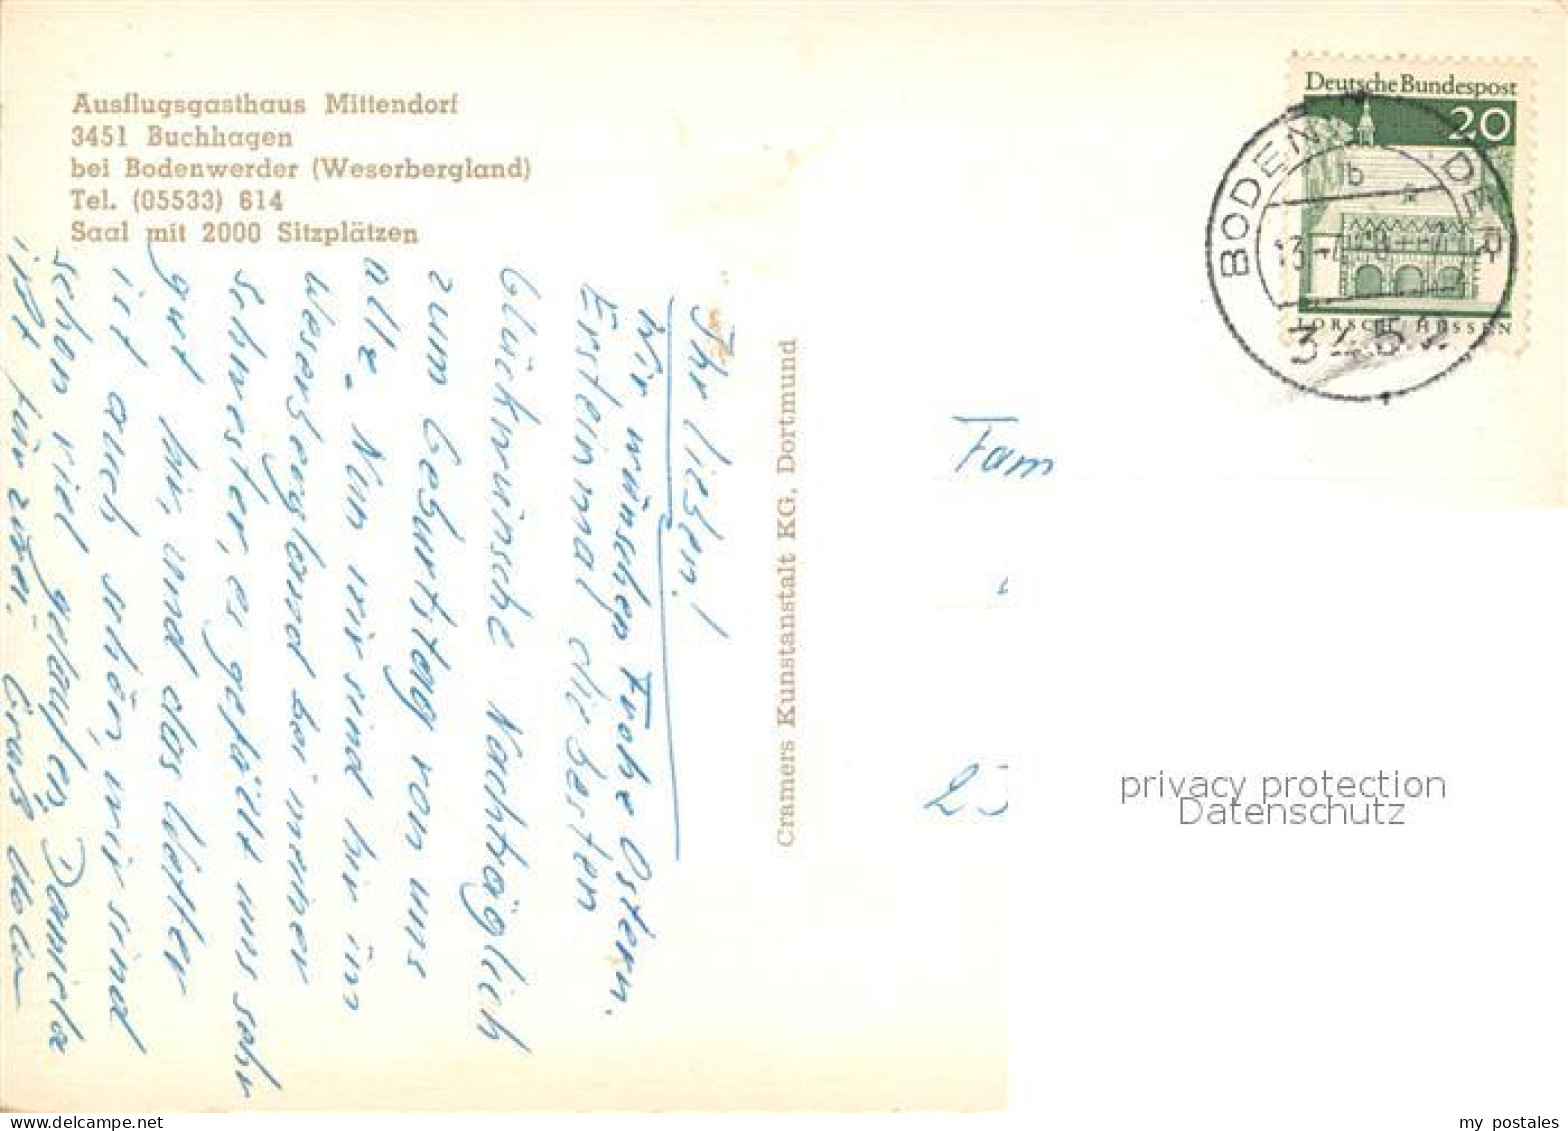 Ausflugsgasthaus Mittendorf
3451 Buchhagen
bei Bodenwerder (Weserbergland)
Tel. (05533) 614
Saal mit 2000 Sitzplätzen
Ihr lieben!
Wir wünschen Frohe Ostern.
Ersteinmal die besten
Glückwünsche Nachträglich
zum Geburtstag von uns
alle. Nun wir sind hir im
Weserbergland bei meiner
Schwester, es gefällt uns sehr
gut hir und das Wetter
ist auch schön, wir sind
schon viel gelaufen, Daniela
ist für zün. Gruß
Cramers Kunstanstalt KG, Dortmund
Deutsche Bundespost
20
LORSCH/HESSEN
BODENWERDER
1b
3452
Fam
privacy protection
Datenschutz
my postales